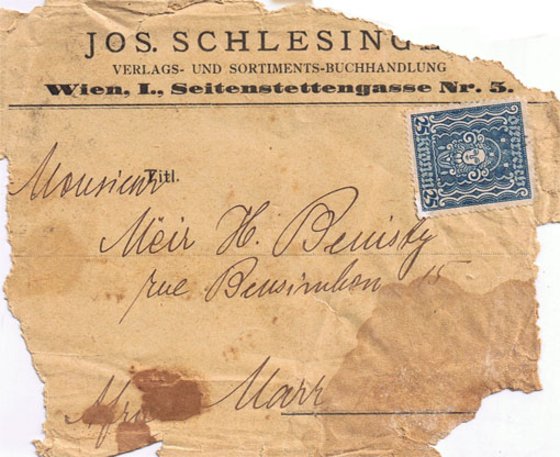 JOS. SCHLESINGE
VERLAGS- UND SORTIMENTS-BUCHHANDLUNG
Wien, I., Seitenstettengasse Nr. 5.
25 Kronen 25
Österreich
Titl.
Monsieur
Méir H. Benisty
rue Bensimhon 15
Marr